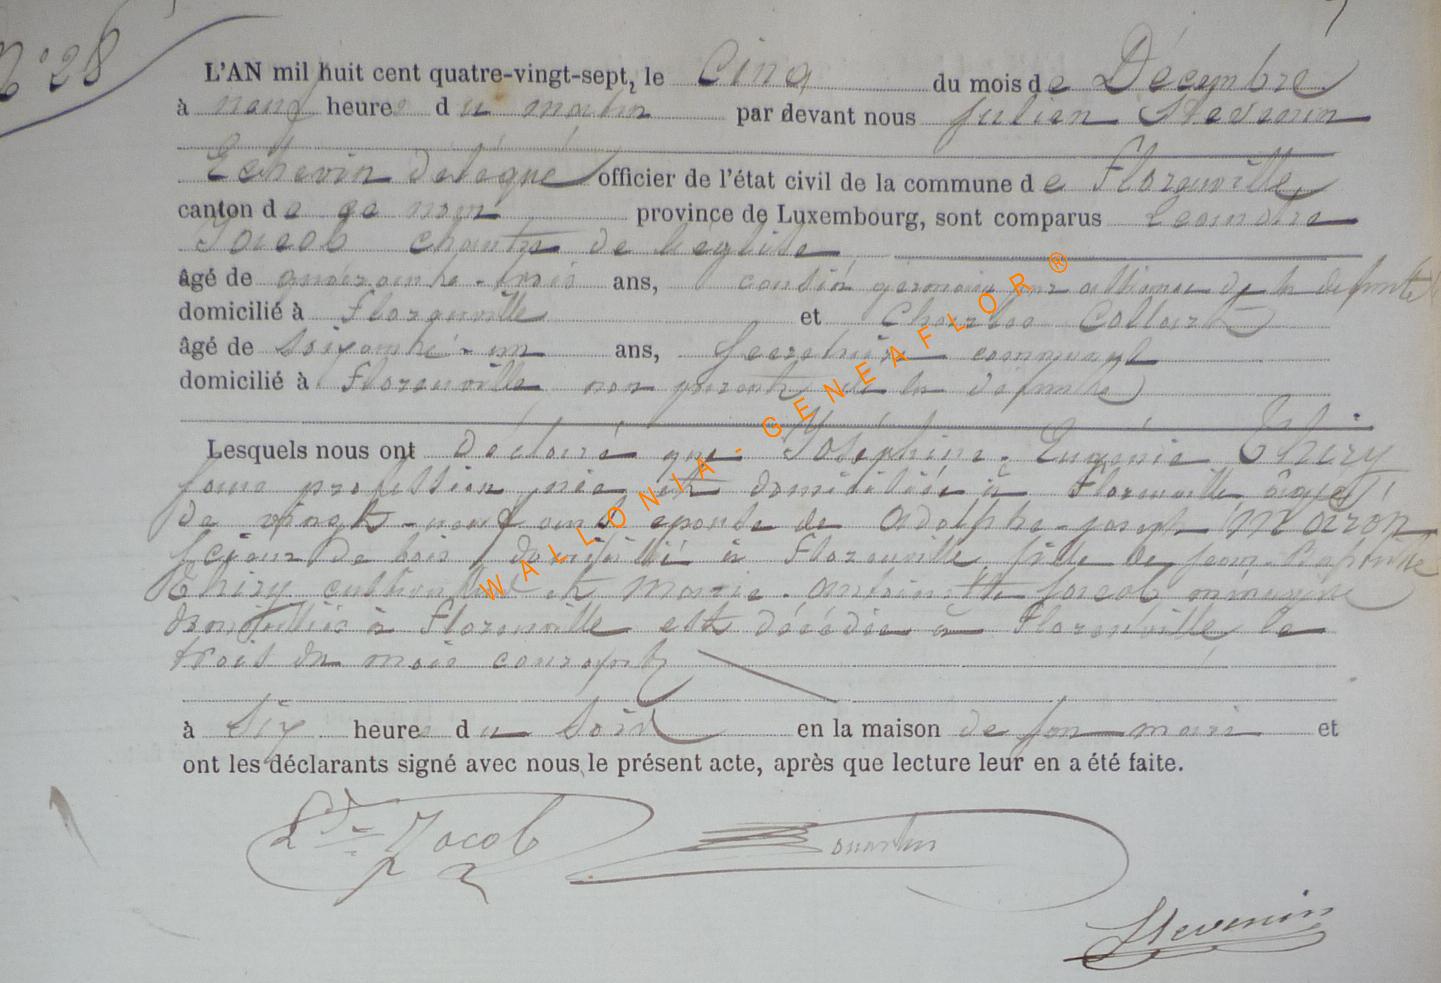 N° 28
L'AN mil huit cent quatre-vingt-sept, le Cinq du mois de Décembre
à neuf heures du matin par devant nous Julien Stevenin
Echevin délégué officier de l'état civil de la commune de Florenville,
canton de ce nom province de Luxembourg, sont comparus Léandre
Jacob chantre de l'église
âgé de quarante-trois ans, cousin germain par alliance de la défunte
domicilié à Florenville et Charles Collart
âgé de soixante-un ans, Secrétaire communal
domicilié à Florenville non parent de la défunte
Lesquels nous ont déclaré que Joséphine-Eugénie Thiry
sans profession née et domiciliée à Florenville âgée
de vingt-neuf ans épouse de Adolphe-Joseph Mairon
scieur de bois domicilié à Florenville, fille de Jean-Baptiste
Thiry cultivateur et Marie-Antoinette Jacob ménagère
domiciliés à Florenville est décédée à Florenville, le
trois du mois courant
à six heures du soir en la maison de son mari et
ont les déclarants signé avec nous le présent acte, après que lecture leur en a été faite.
Ld Jacob
Stevenin
WALLONIA-GENEAFLOR ®